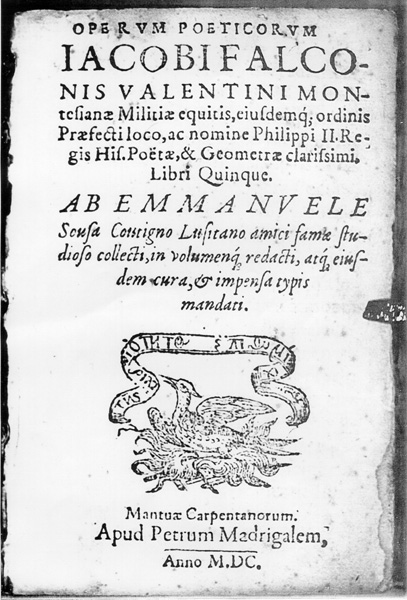 OPERVM POETICORVM
IACOBI FALCO-
NIS VALENTINI MON-
tesianæ Militiæ equitis, eiusdemq́; ordinis
Præfecti loco, ac nomine Philippi II. Re-
gis His. Poëtæ, & Geometræ clarissimi.
Libri Quinque.
AB EMMANVELE
Sousa Coutigno Lusitano amici famæ stu-
dioso collecti, in volumenq́; redacti, atq́; eius-
dem cura, & impensa typis
mandati.
Mantuæ Carpentanorum.
Apud Petrum Madrigalem,
Anno M.DC.